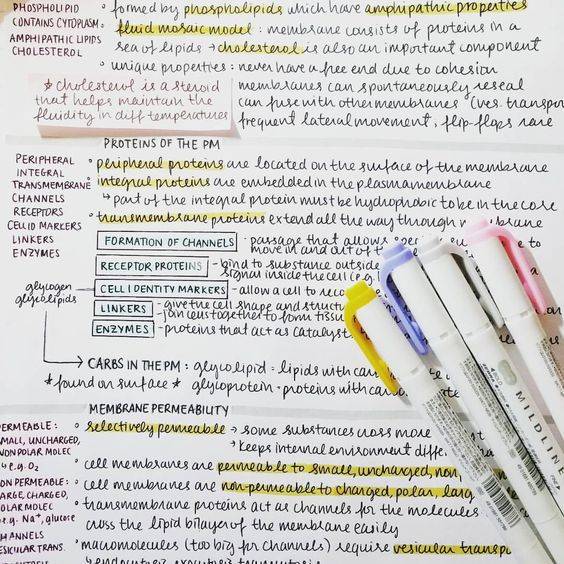 PHOSPHOLIPID
CONTAINS CYTOPLASM
AMPHIPATHIC LIPIDS
CHOLESTEROL
° formed by phospholipids which have amphipathic properties
° fluid mosaic model : membrane consists of proteins in a
sea of lipids → cholesterol is also an important component
° unique properties : never have a free end due to cohesion
membranes can spontaneously reseal
can fuse with other membranes (ves. transpor
frequent lateral movement, flip-flops rare
* cholesterol is a steroid
that helps maintain the
fluidity in diff temperatures
PROTEINS OF THE PM
PERIPHERAL
INTEGRAL
TRANSMEMBRANE
CHANNELS
RECEPTORS
CELL ID MARKERS
LINKERS
ENZYMES
° peripheral proteins are located on the surface of the membrane
° integral proteins are embedded in the plasma membrane
↳ part of the integral protein must be hydrophobic to be in the core
° transmembrane proteins extend all the way through membrane
FORMATION OF CHANNELS - passage that allows to
move in and out of
RECEPTOR PROTEINS - bind to substance outside
signal inside the cell (e.g.
CELL IDENTITY MARKERS - allow a cell to
LINKERS - give the cell shape and
join cells together to form
ENZYMES - proteins that act as
glycogen
glycolipids
→ CARBS IN THE PM : glycolipid = lipids with
* found on surface * glycoprotein = proteins with
MEMBRANE PERMEABILITY
PERMEABLE:
SMALL, UNCHARGED,
NONPOLAR MOLEC
↳ e.g. O₂
NON PERMEABLE:
LARGE, CHARGED,
POLAR MOLEC
e.g. Na⁺, glucose
CHANNELS
VESICULAR TRANS.
° selectively permeable → some substances cross more
↳ keeps internal environment
° cell membranes are permeable to small, uncharged, non
° cell membranes are non-permeable to charged, polar, larg
° transmembrane proteins act as channels for the molecules
cross the lipid bilayer of the membrane easily
° macromolecules (too big for channels) require vesicular transpo
↳ endocytosis exocytosis transcytosis
MILDLINE